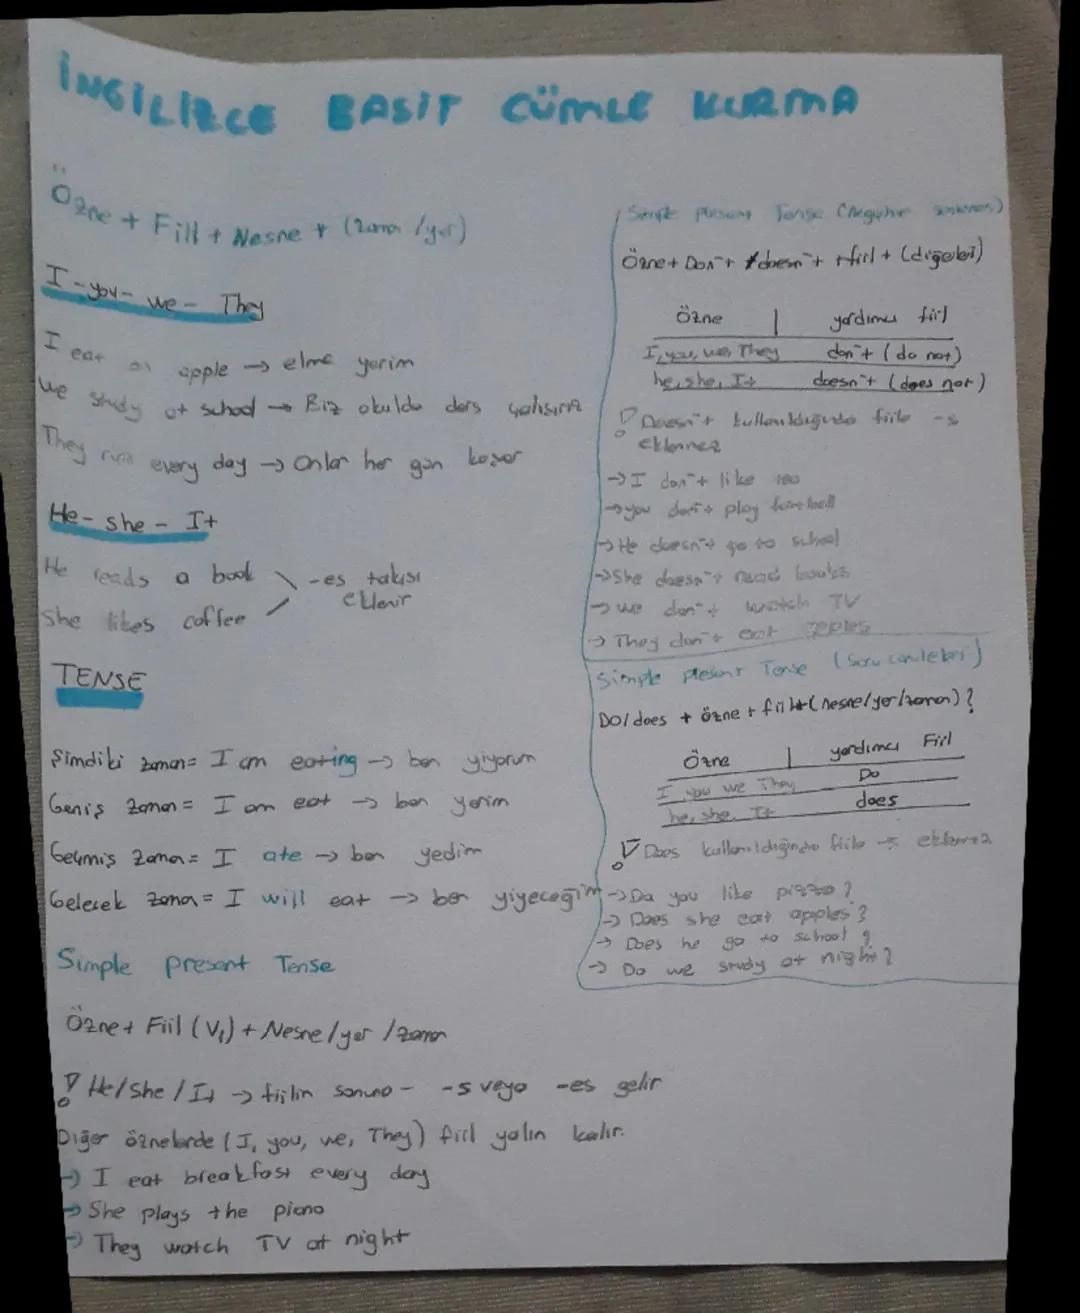 İNGİLİZCE BASİT CÜMLE KURMA
Özne + Fiil + Nesne + (zaman /yer)
I - you - we - They
I eat an apple → elma yerim
We study at school → Biz okulda ders çalışırız
They run every day → Onlar her gün koşar
He - she - It
He reads a book
She likes coffee
-es takısı
eklenir
TENSE
Şimdiki zaman = I am eating → ben yiyorum
Geniş zaman = I am eat → ben yerim
Geçmiş zaman = I ate → ben yedim
Gelecek zaman = I will eat → ben yiyeceğim
Simple present Tense
Özne + Fiil (V₁) + Nesne / yer / zaman
! He/She / It → fiilin sonuna - -s veya -es gelir
Diğer öznelerde (I, you, we, They) fiil yalın kalır.
→ I eat breakfast every day
→ She plays the piano
→ They watch TV at night
Simple present Tense
Özne + Don't / doesn't + fiil + (diğerleri)
Özne | yardımcı fiil
I, you, we, They don't (do not)
he, she, It doesn't (does not)
! Doesn't kullanıldığında fiile -s
eklenmez
→ I don't like tea
→ you don't play football
→ He doesn't go to school
→ She doesn't read books
→ we don't watch TV
→ They don't eat apples
Simple present Tense (Soru cümleleri)
DO/does + özne + fiil + (nesne/yer/zaman) ?
Özne | yardımcı Fiil
I you we They Do
he, she, It does
! Does kullanıldığında fiile -s eklenmez
→ Do you like pizza ?
→ Does she eat apples ?
→ Does he go to school ?
→ Do we study at night ?